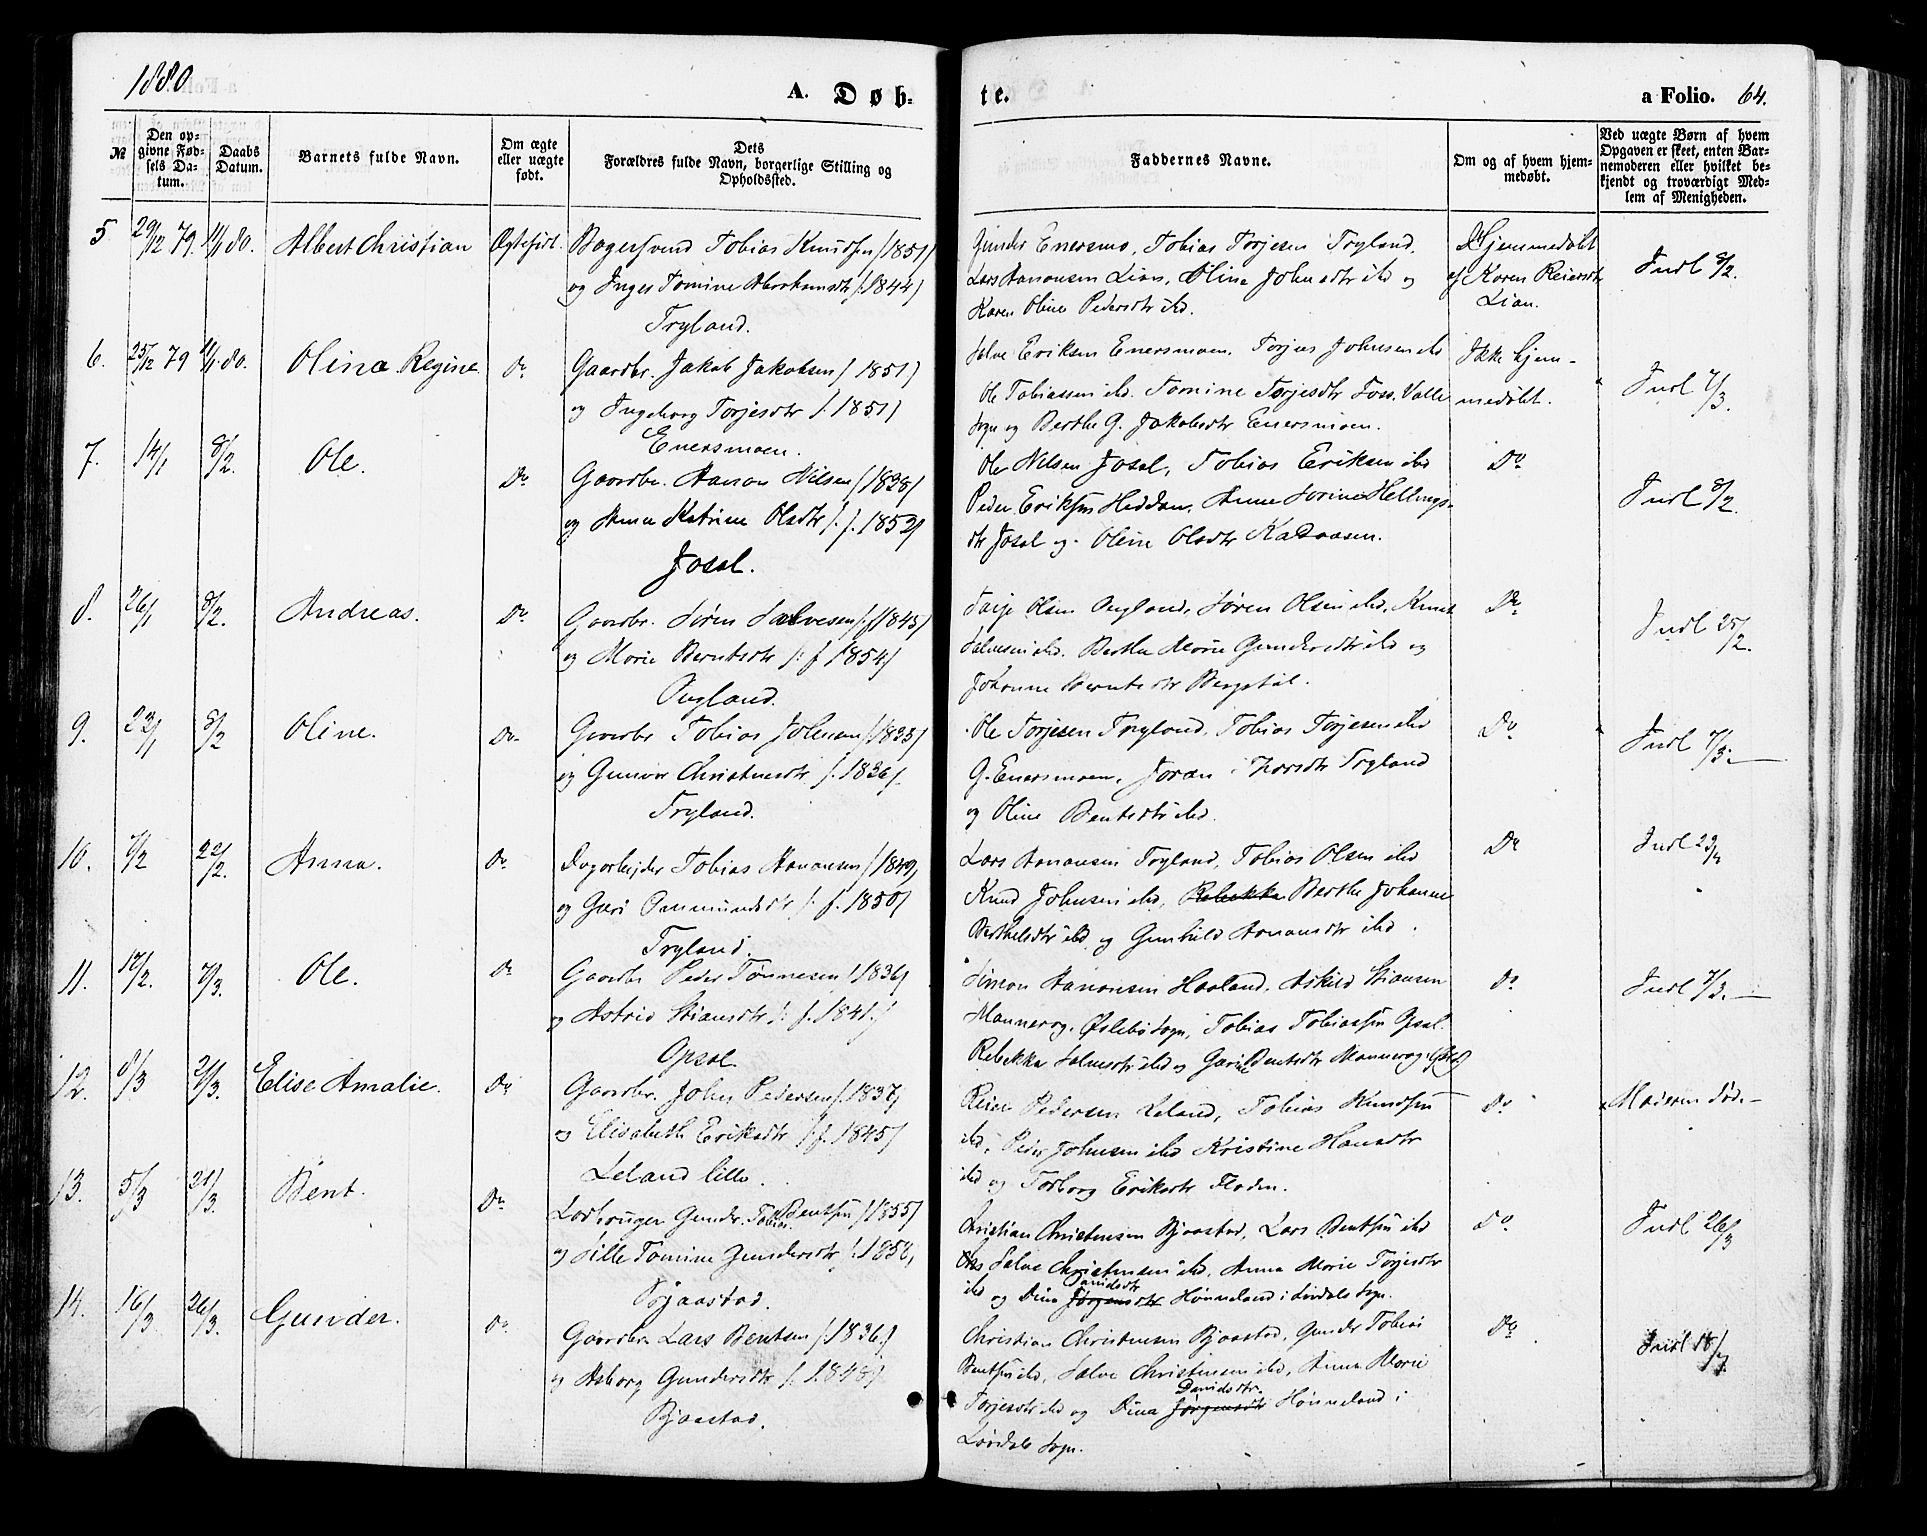 1880
A. Døb-
te.
a Folio. 64.
№
Den op-
givne Fød-
sels Da-
tum.
Daabs
Datum.
Barnets fulde Navn.
Om ægte
eller uægte
født.
Dets
Forældres fulde Navn, borgerlige Stilling og
Opholdssted.
Faddernes Navne.
Om og af hvem hjem-
medøbt.
Ved uægte Børn af hvem
Opgaven er skeet, enten Bar-
nemoderen eller hvilket be-
kjendt og troværdigt Med-
lem af Menigheden.
5 29/12 79. 11/1 80. Albert Christian Ægtefødt. Tobias Knudsen (1851)
og Inger Tomine Abrahamsdtr f. 1844)
Tryland.
Gunder Enersmo, Tobias Torjesen Tryland,
Lars Aanonsen Lian, Oline Johnsdtr ibd og
Karen Oline Pedersdtr ibd.
Hjemmedøbt
af Karen Reiersdtr
Lian.
Indl 8/2.
6. 25/12 79 11/1 80. Olina Regine Do Gaardbr. Jakob Jakobsen f 1851)
og Ingeborg Torjesdtr f. 1851)
Enersmoen.
Salve Eriksen Enersmoen. Torjus Johnsen ibd
Ole Tobiassen ibd. Tomine Torjesdtr Foss, Valle
Sogn og Berthe G. Jakobsdtr Enersmoen.
Ikke hjem-
medøbt.
Indl 7/3.
7. 14/1 8/2. Ole. Do Gaardbr. Aanon Nilsen (1828)
og Anne Katrine Olsdtr f. 1852)
Josal.
Ole Nilsen Josal, Tobias Eriksen ibd
Peder Eriksen Heddan, Anne Sorine Hellings-
dtr Josal og Oline Olsdtr
Do
Indl 8/2.
8. 26/1 8/2. Andreas. Do Gaardbr. Søren Salvesen f 1845)
og Marie Berntsdtr f 1854)
Tarje Olsen, Søren Olsen ibd, Knut
Salvesen ibd. Berthe Marie Gundersdtr ibd og
Johanne Berntsdtr Bergstøl.
Do
Indl 25/2.
9. 23/1 8/2 Oline. Do. Gaardbr Tobias Johnsen f 1833)
og Gunvor Christensdtr f. 1836)
Tryland.
Ole Torjesen Tryland, Tobias Torjesen ibd
G. Enersmoen, Joran Tryland
og Oline Bentsdtr ibd.
Do
Indl 7/3.
10. 7/2 22/2. Anna. Do Dagarbejder Tobias Aanonsen f 1849)
og Guri Aanmundsdtr f. 1850)
Tryland.
Lars Aanonsen Tryland, Tobias Olsen ibd
Knud Johnsen ibd, Rebekka Berthe Johanne
Berthelsdtr ibd og Gunhild Aanonsdtr ibd.
Do
Indl 23/
11. 17/2. 7/3. Ole. Do Gaardbr Peder Tønnesen f 1836)
og Astrid Stiansdtr f. 1841)
Opsal.
Simon Aanonsen Haaland, Askild Stiansen
Mannerog, Øslebø Sogn, Tobias Tobiassen Opsal.
Rebekka Salvesdtr ibd og Bentsdtr Mannerog
Do
Indl 7/3.
12. 8/3 21/3. Elise Amalie. Do Gaardbr. John Pedersen f. 1837)
og Elisabeth Eriksdtr f. 1845)
Leland lille.
Reier Pedersen Leland, Tobias Knudsen
ibd, Peder Johnsen ibd Kristine Hansdtr
ibd og Torborg Eriksdtr Floden.
Do
Moderen død.
13. 5/3 21/3. Bent. Do Gunder Tobias Bentsen f 1855)
og Sille Tomine Gundersdtr f. 1858)
Bjaastad.
Christian Christensen Bjaastad, Lars Bentsen ibd
Salve Christensen ibd, Anna Marie Torjesdtr
ibd og Dina Jørgensdtr Davidsdtr Hønneland i Søvdals Sogn.
Do.
Indl 26/3
14. 16/3. 26/3. Gunder. Do Gaardbr Lars Bentsen f. 1836)
og Asborg Gundersdtr f. 1848)
Bjaastad.
Christian Christensen Bjaastad, Gunder Tobias
Bentsen ibd, Salve Christensen ibd, Anna Marie
Torjesdtr ibd og Dina Jørgensdtr Davidsdtr. Hønneland i
Søvdals Sogn.
Do
Indl 18/